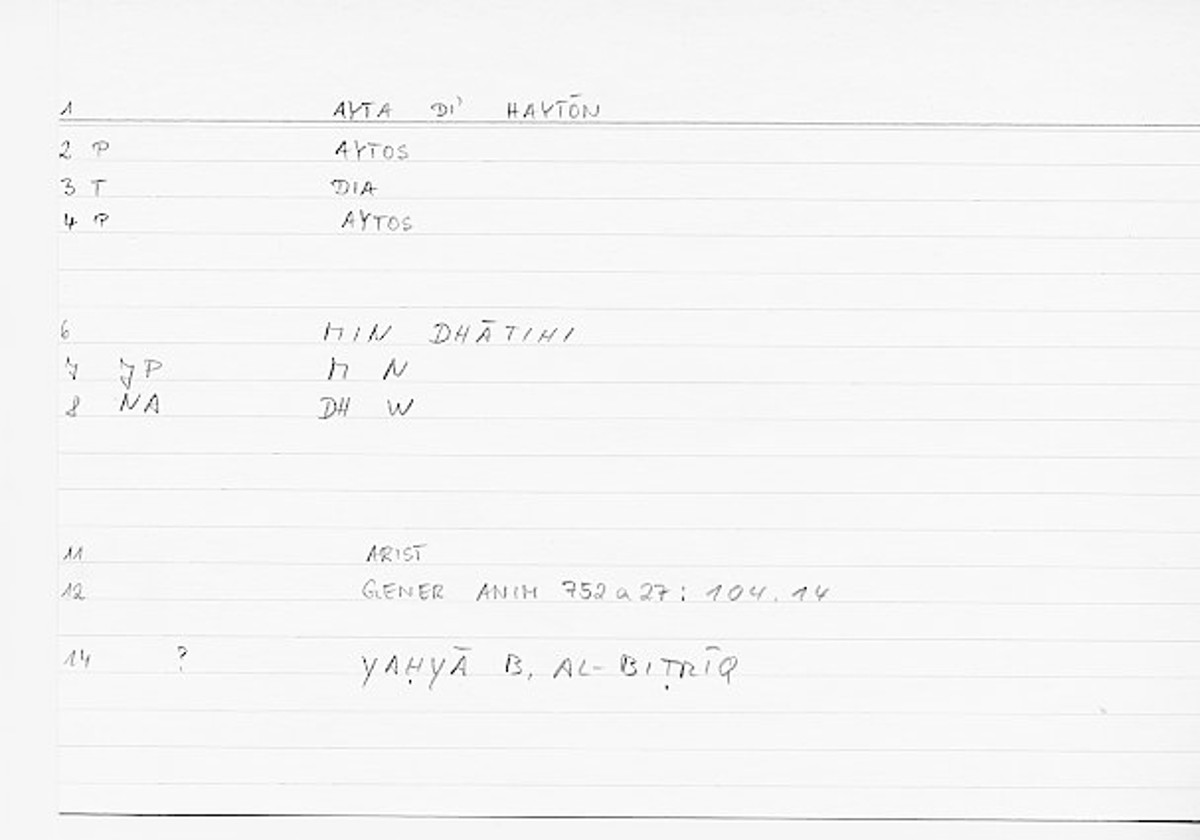 1 AYTA DI' HAYTŌN
2 P AYTOS
3 T DIA
4 P AYTOS
6 MIN DHĀTIHI
7 JP M N
8 NA DH W
11 ARIST
12 GENER ANIM 752a27: 104.14
14 ? YAḤYĀ B. AL-BIṬRĪQ